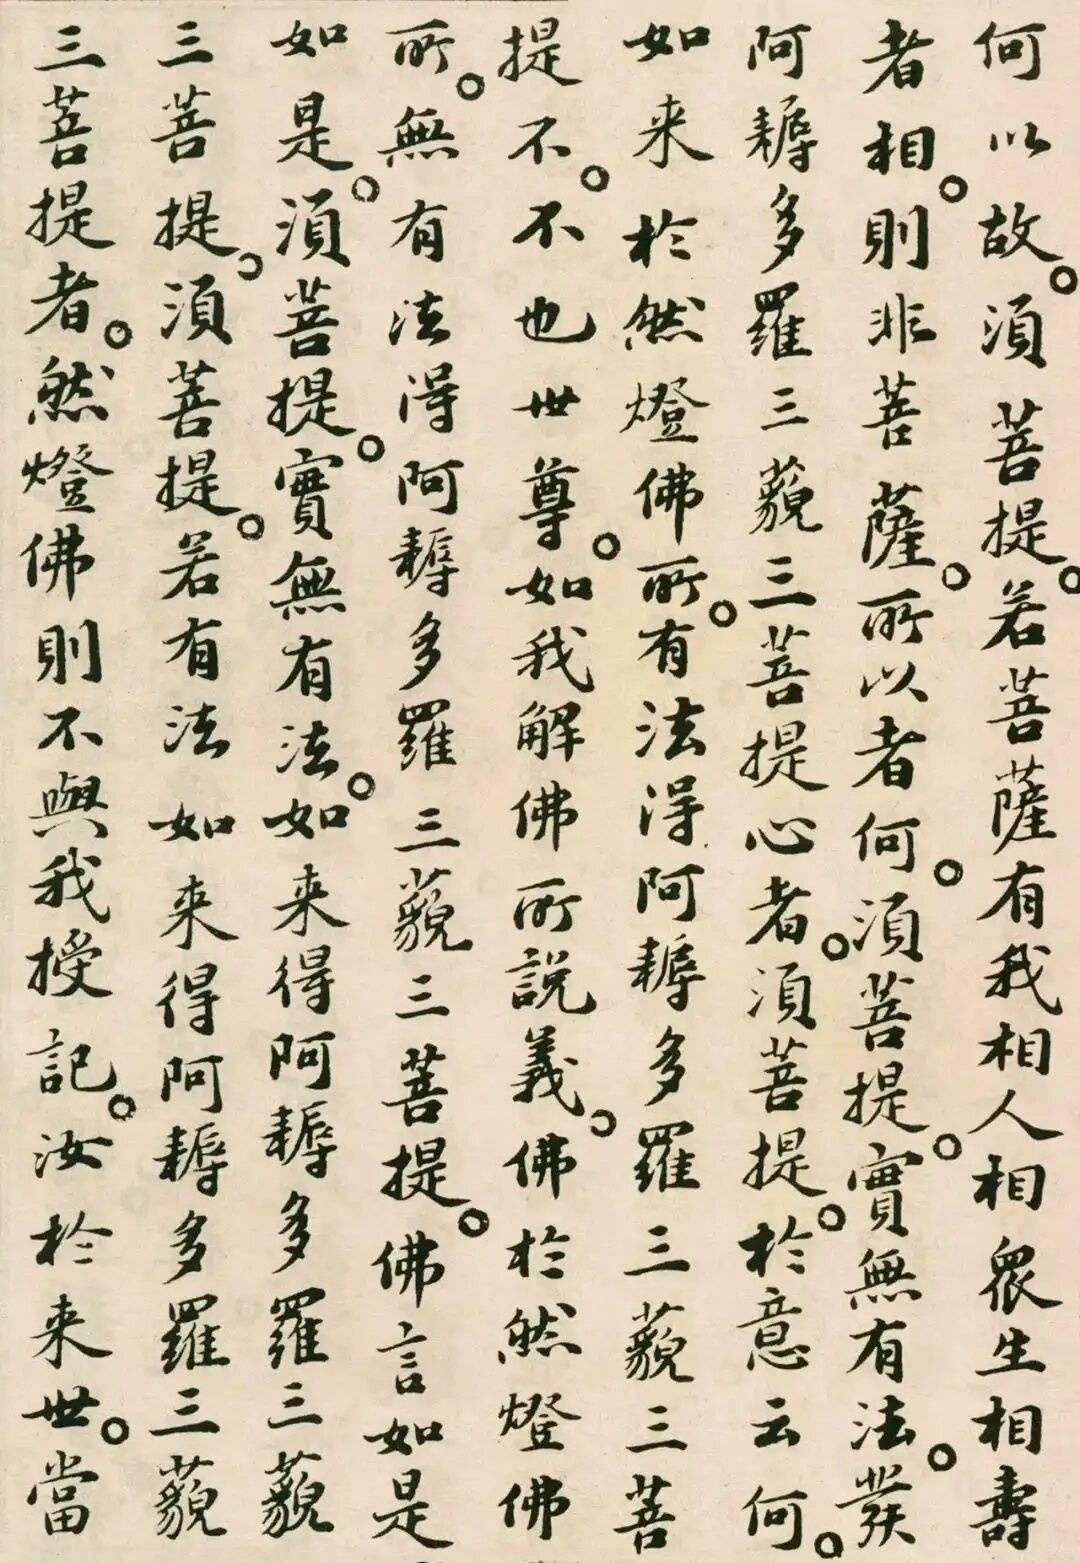 何以故。須菩提。若菩薩有我相人相衆生相壽
者相。則非菩薩。所以者何。須菩提。實無有法。發
阿耨多羅三藐三菩提心者。須菩提。於意云何。
如来於然燈佛所。有法得阿耨多羅三藐三菩
提不。不也世尊。如我解佛所說義。佛於然燈佛
所。無有法得阿耨多羅三藐三菩提。佛言如是
如是。須菩提。實無有法。如来得阿耨多羅三藐
三菩提。須菩提。若有法如来得阿耨多羅三藐
三菩提者。然燈佛則不與我授記。汝於来世。當